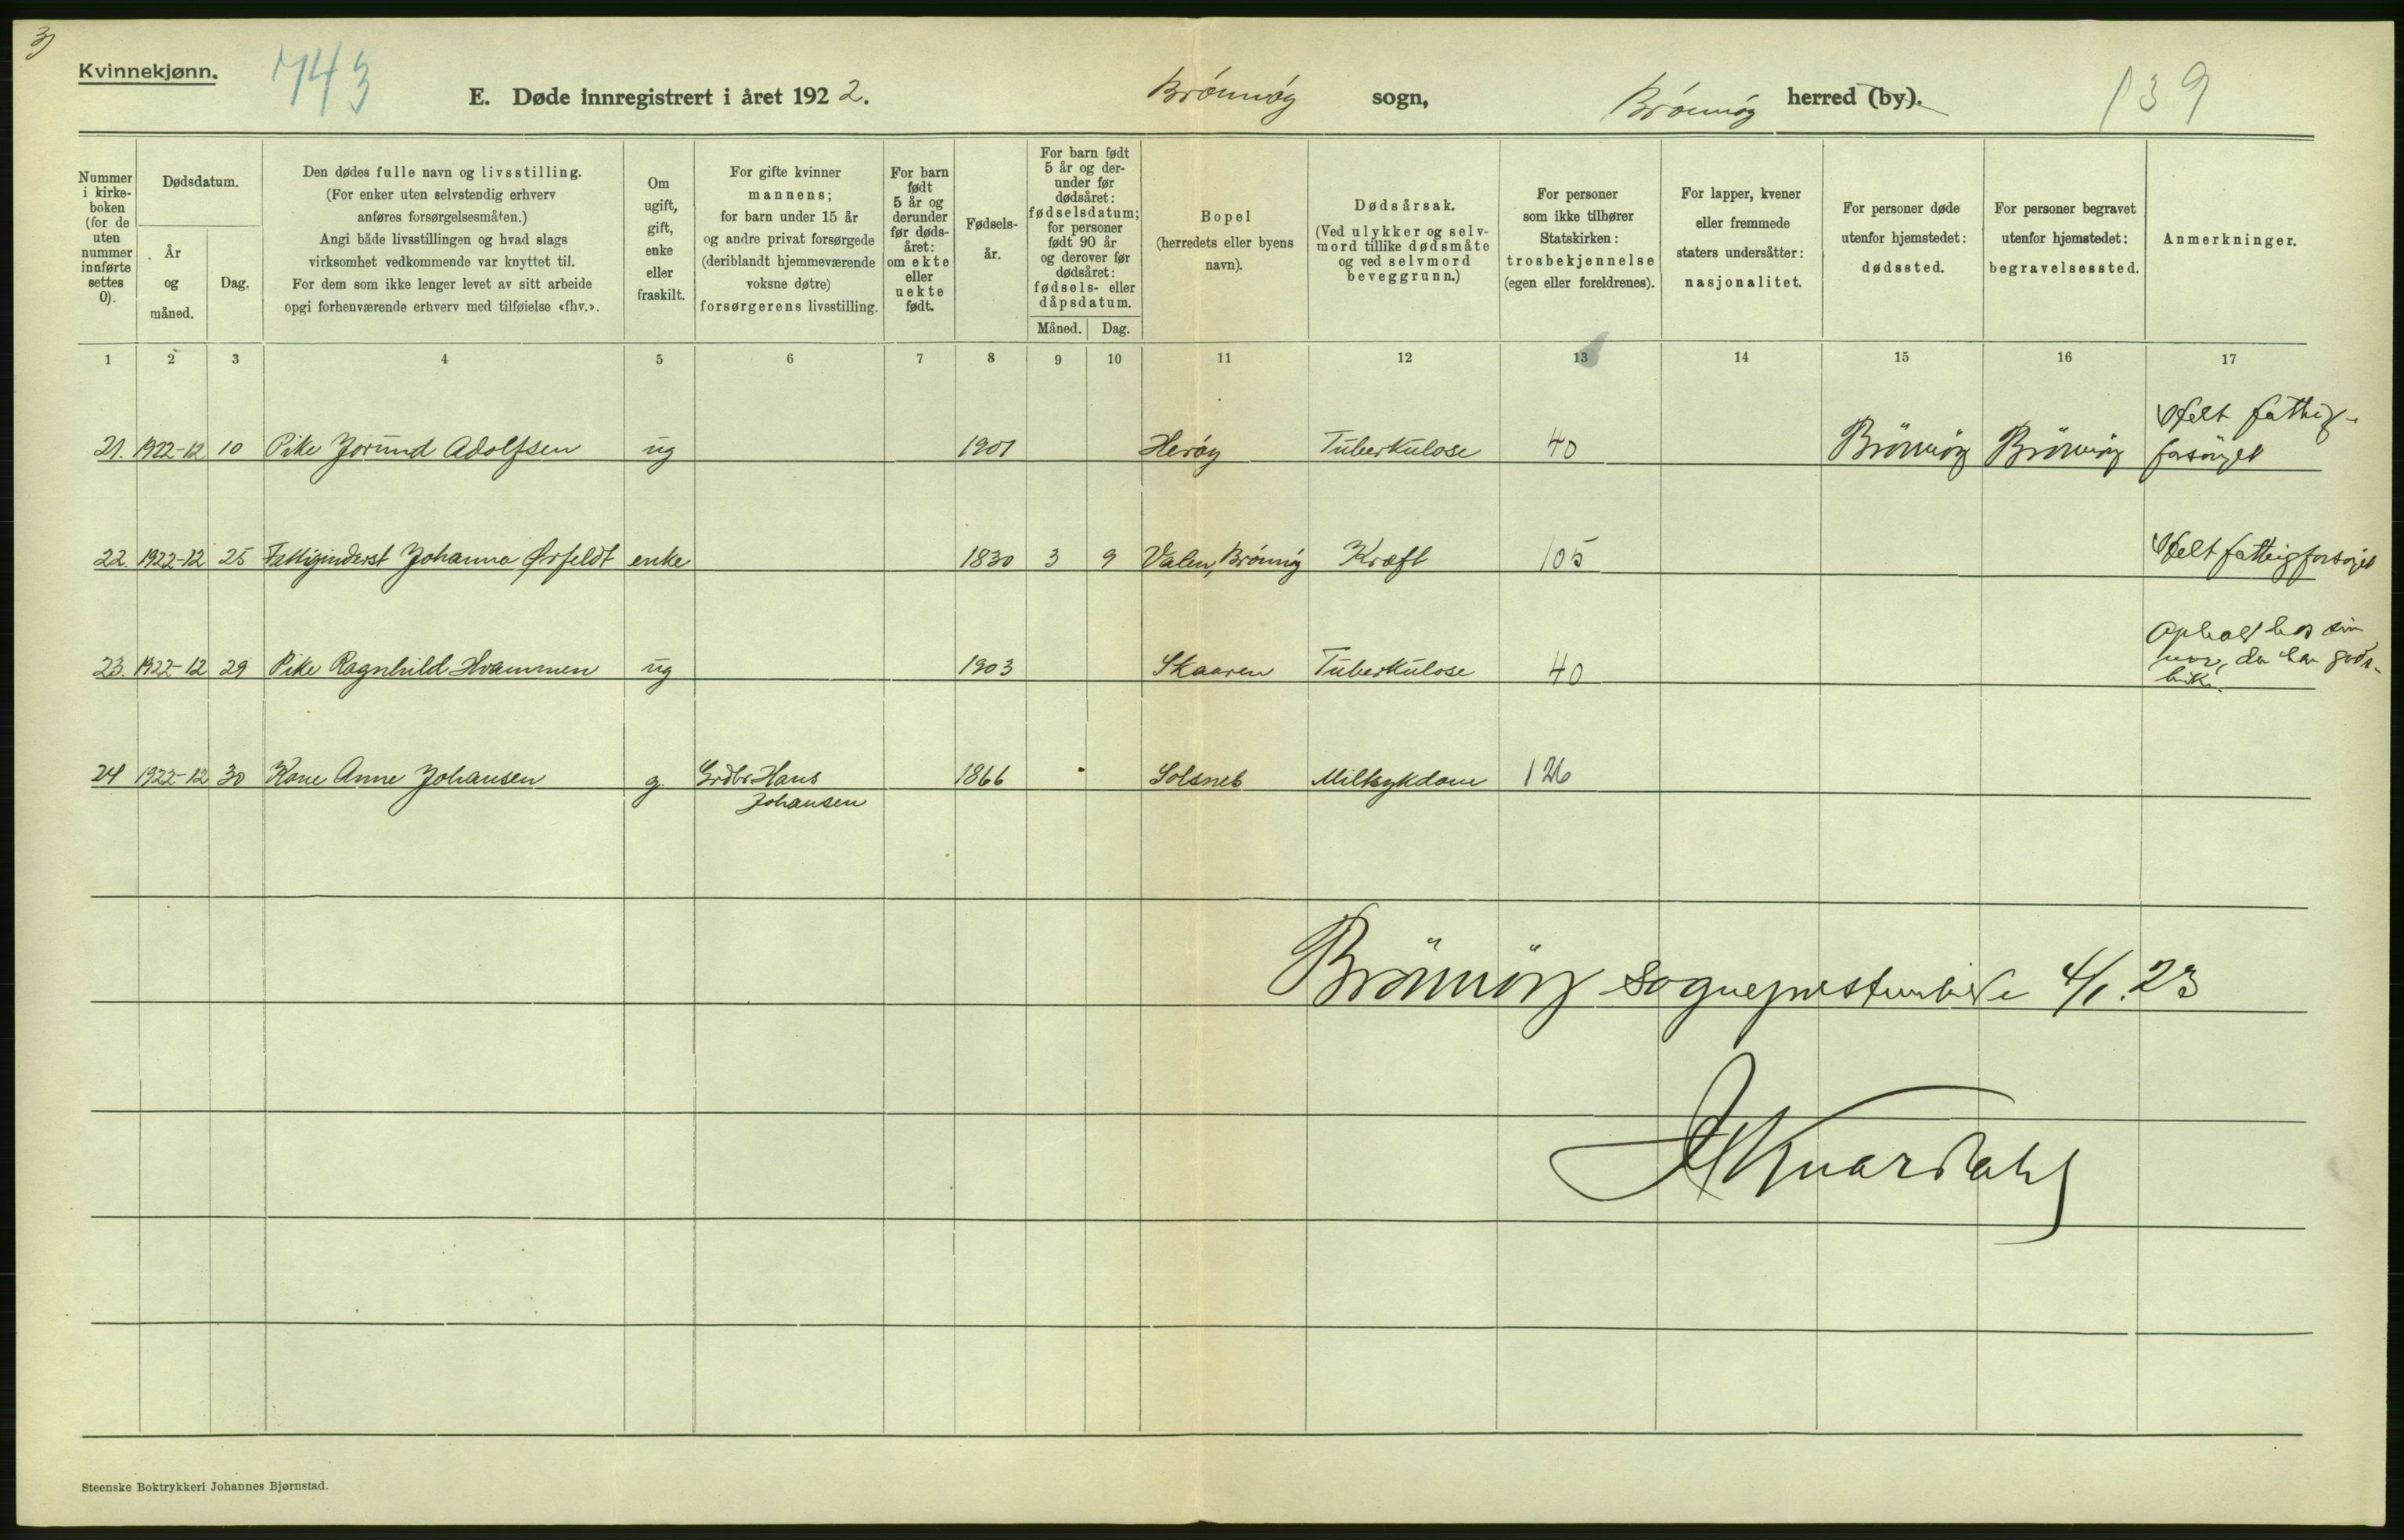 3)
Kvinnekjønn.
743
E. Døde innregistrert i året 1922.
Brönnöy sogn,
Brönnöy herred (by).
139
Nummer i kirke- boken (for de uten nummer innførte settes 0).
Dødsdatum.
År og måned.
Dag.
Den dødes fulle navn og livsstilling.
(For enker uten selvstendig erhverv
anføres forsørgelsesmåten.)
Angi både livsstillingen og hvad slags
virksomhet vedkommende var knyttet til.
For dem som ikke lenger levet av sitt arbeide
opgi forhenværende erhverv med tilføielse «fhv.».
Om ugift, gift, enke eller fraskilt.
For gifte kvinner
mannens;
for barn under 15 år
og andre privat forsørgede
(deriblandt hjemmeværende
voksne døtre)
forsørgerens livsstilling.
For barn født 5 år og derunder før døds- året: om ekte eller uekte født.
Fødsels- år.
For barn født 5 år og der- under før dødsåret: fødselsdatum; for personer født 90 år og derover før dødsåret: fødsels- eller dåpsdatum.
Måned. Dag.
Bopel
(herredets eller byens
navn).
Dødsårsak.
(Ved ulykker og selv-
mord tillike dødsmåte
og ved selvmord
beveggrunn.)
For personer
som ikke tilhører
Statskirken:
trosbekjennelse
(egen eller foreldrenes).
For lapper, kvener
eller fremmede
staters undersåtter:
nasjonalitet.
For personer døde
utenfor hjemstedet:
dødssted.
For personer begravet
utenfor hjemstedet:
begravelsessted.
Anmerkninger.
1 2 3 4 5 6 7 8 9 10 11 12 13 14 15 16 17
21. 1922-12 10 Pike Jorund Adolfsen ug 1901 Heröy Tuberkulose 40 Brönnöy Brönnöy Helt fattig-
forsörget
22. 1922-12 25 Fattiginderst Johanna Ørfeldt enke 1830 3 9 Valen, Brönnöy Kræft 105 Helt fattigforsörget
23. 1922-12 29 Pike Ragnhild Hvammen ug 1903 Skaaren Tuberkulose 40 Ophold hos sin
mor, der har
24 1922-12 30 Kone Anne Johansen g. Grdbr Hans
Johansen 1866 Solsnes Miltsykdom 126
Brönnöy sogneprestembede 4/1. 23
Steenske Boktrykkeri Johannes Bjørnstad.